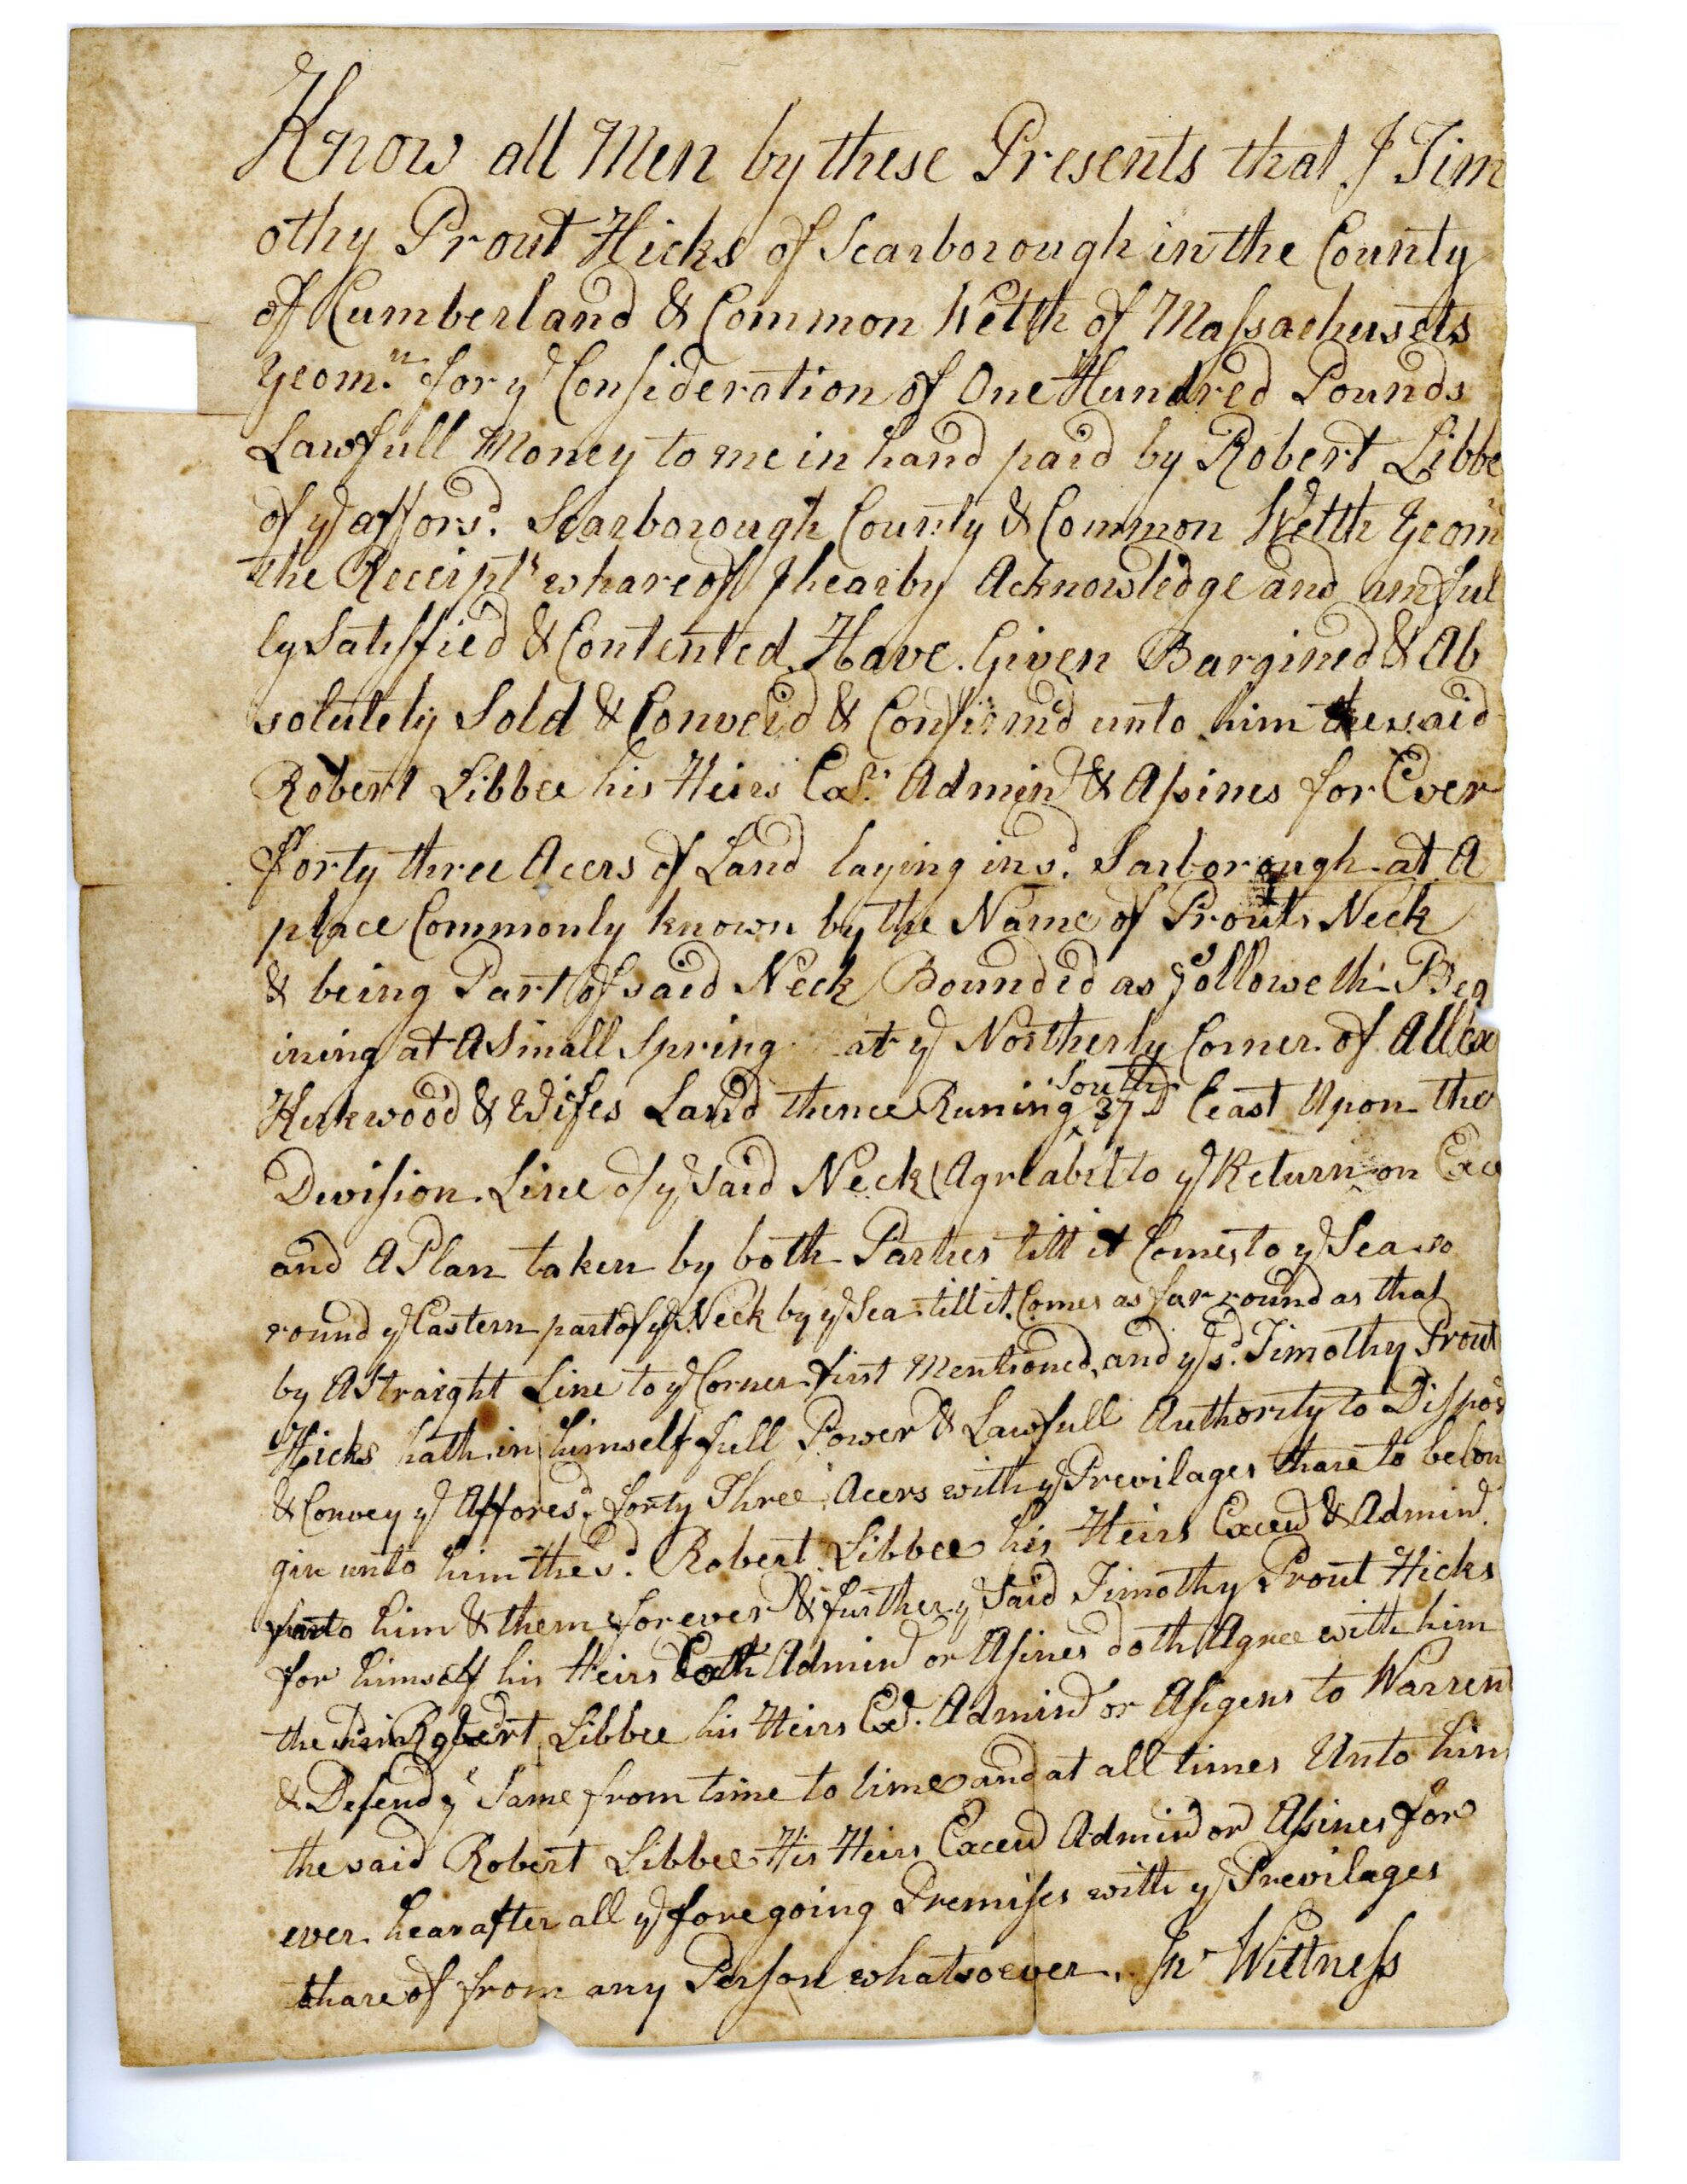 Know all Men by these Presents that I Tim
othy Prout Hicks of Scarborough in the County
of Cumberland & Common Welth of Massachusets
Yeomn. for ye Consideration of One Hundred Pounds
Lawfull Money to me in hand paid by Robert Libbe
of ye afforsd. Scarborough County & Common Welth Yeomn
the Receipt whareof I hearby Acknowledge and am ful
ly Satisffied & Contented Have Given Bargined & Ab
solutely Sold & Conveid & Confirmd unto him the said
Robert Libbee his Heirs Exr. Admind & Assines for Ever
Forty three Acers of Land laying in sd. Sarborough at A
place Commonly known by the Name of Prouts Neck
& being Part of said Neck Bounded as followeth Beg
ining at A Small Spring at ye Northerly Corner of Allex
Kirkwood & Wifes Land thence Runing South 37D East Upon the
Division Line of ye said Neck Agreabel to ye Return on Exe
and A Plan taken by both Parties till it Comes to ye Sea so
round ye Eastern part of ye Neck by ye Sea till it Comes as far round as that
by A Straight Line to ye Corner first Mentioned, and ye sd. Timothy Prout
Hicks hath in himself full Power & Lawfull Authority to Dispos
& Convey ye Afforesd. forty Three Acers with ye Previlages thare to belon
gin unto him the sd. Robert Libbee his Heirs Exeud & Admind.
unto him & them forever & further ye Said Timothy Prout Hicks
for himself his Heirs Admind or Assines doth Agree with him
the Robert Libbee his Heirs Exd. Admind or Assigens to Warrent
& Defend ye Same from time to time and at all times Unto him
the said Robert Libbee His Heirs Exeud Admind or Assines for
ever hearafter all ye foregoing Premises with ye Previlages
thareof from any Person whatsoever. In Wittness